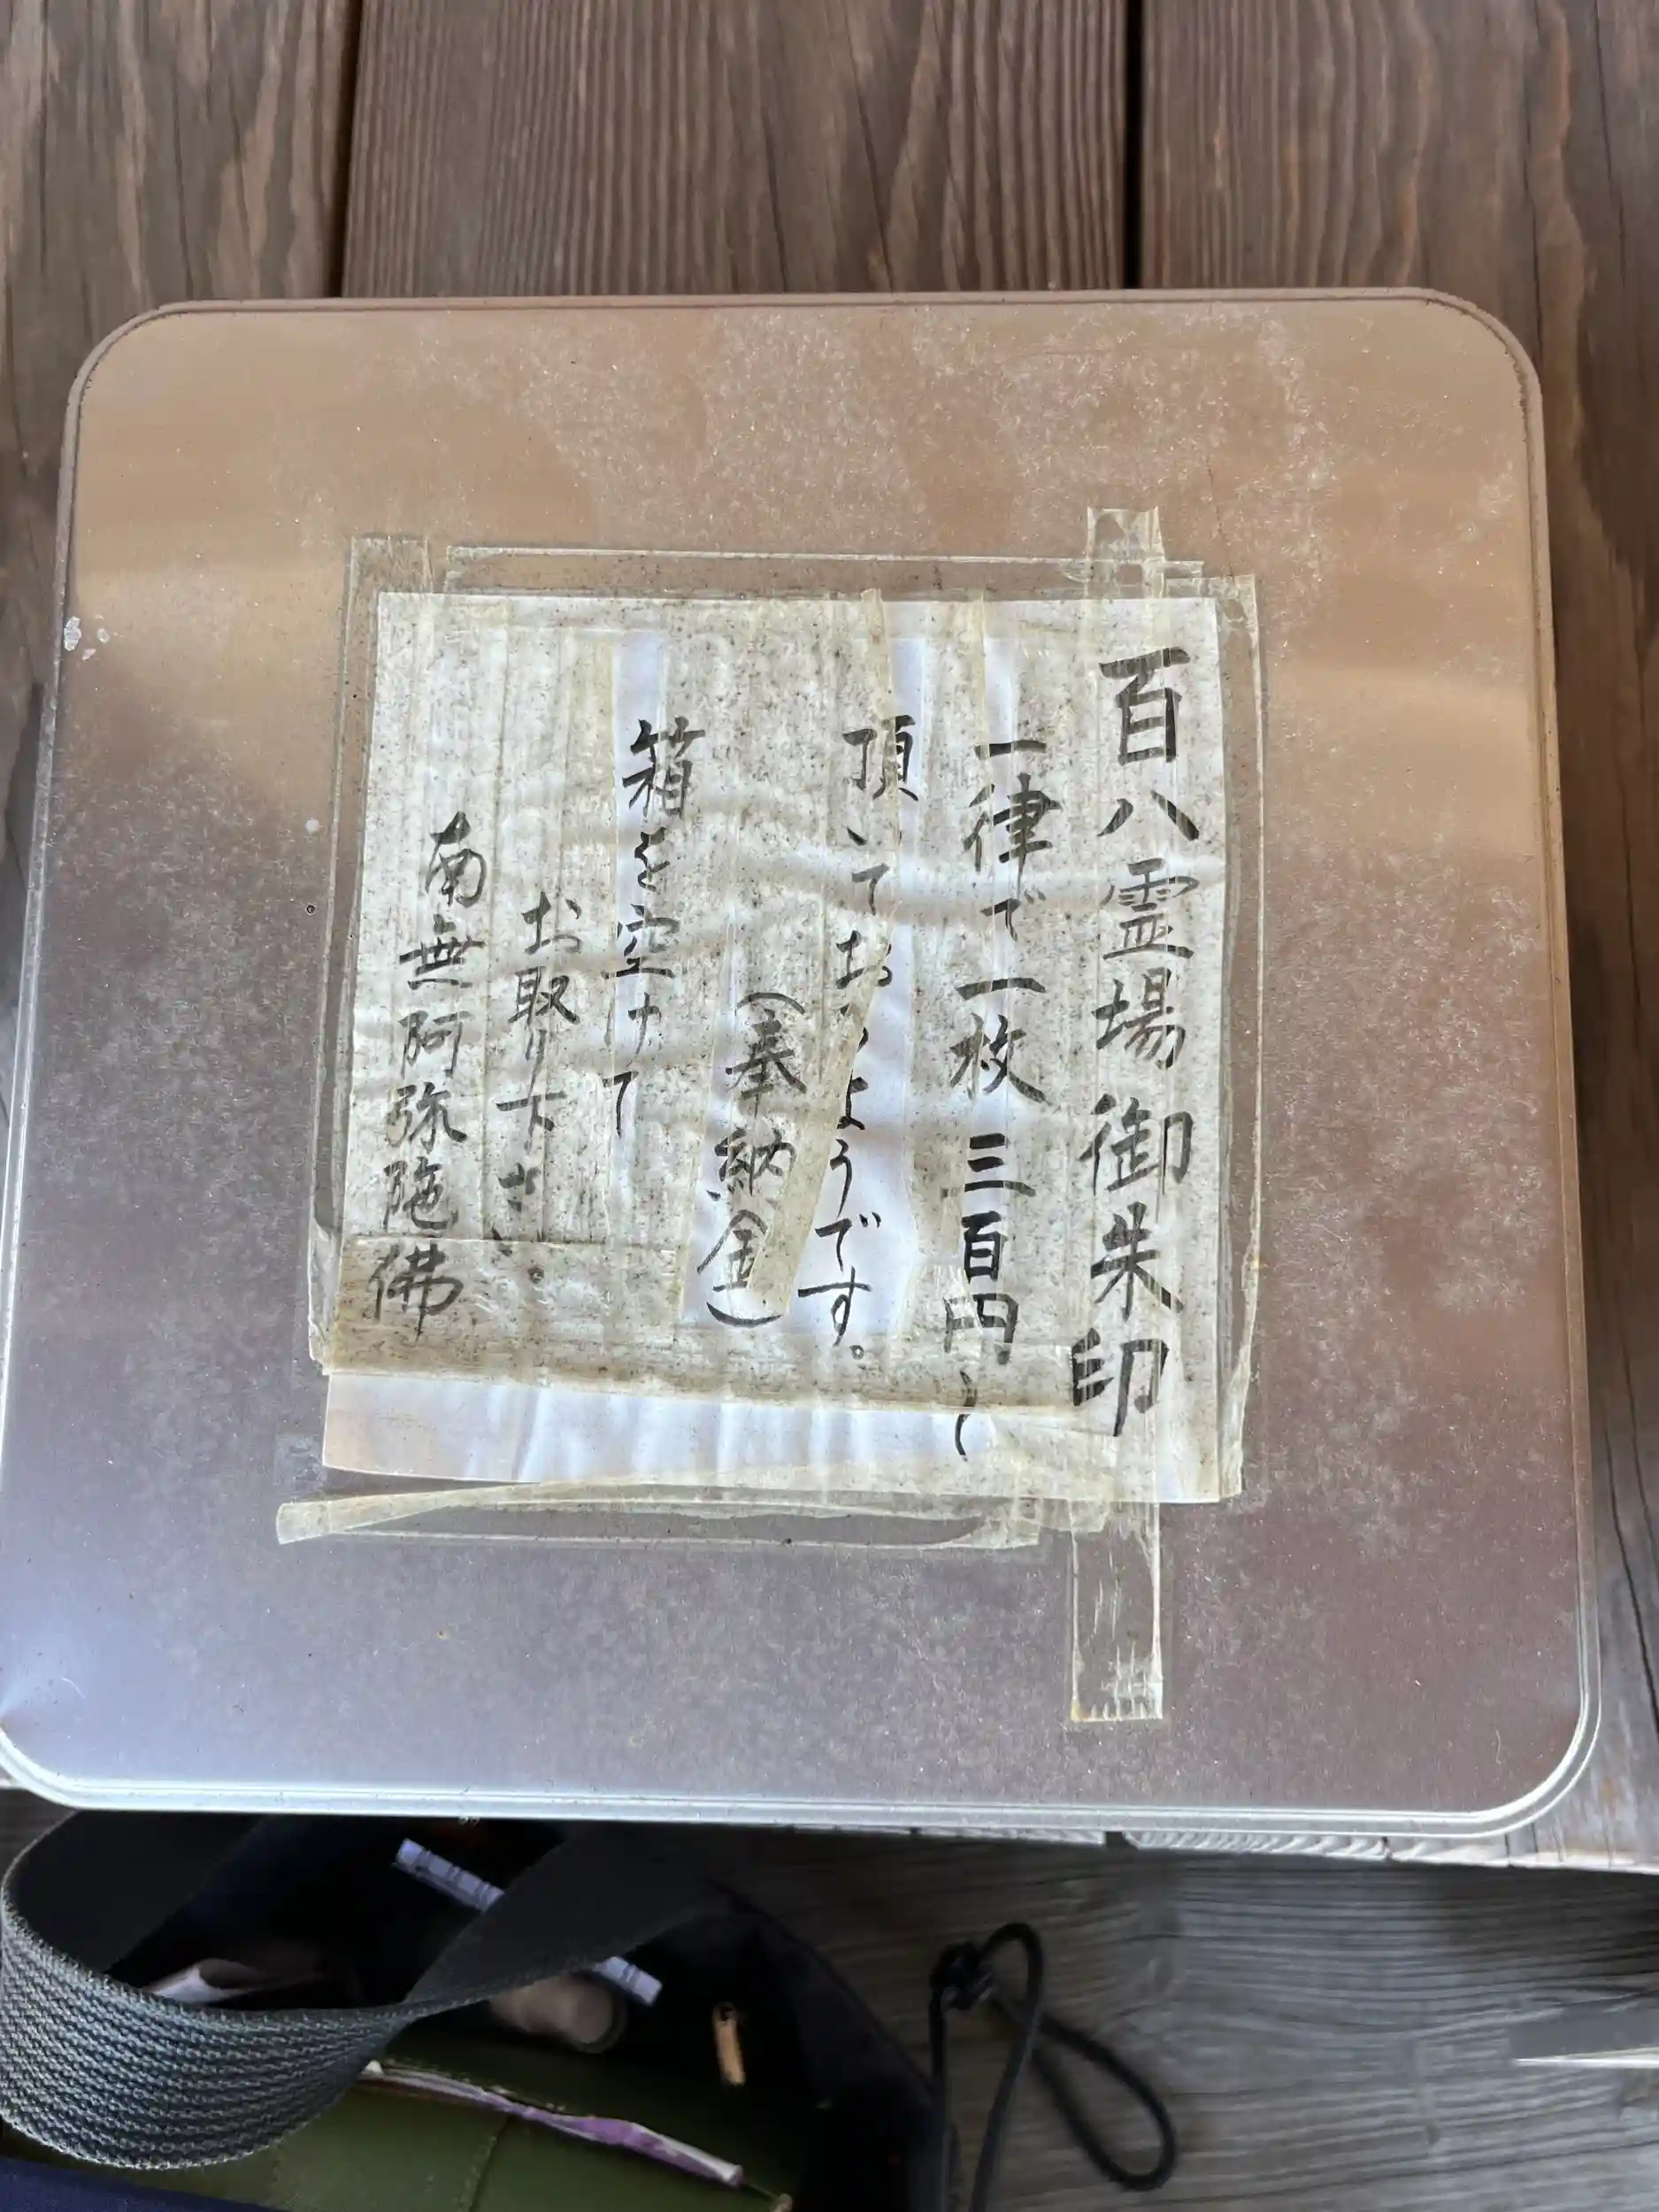 百八霊場 御朱印
一律で一枚 三百円
頂いておるようです。
(奉納金)
箱を空けて
お取り下さい。
南無阿弥陀佛